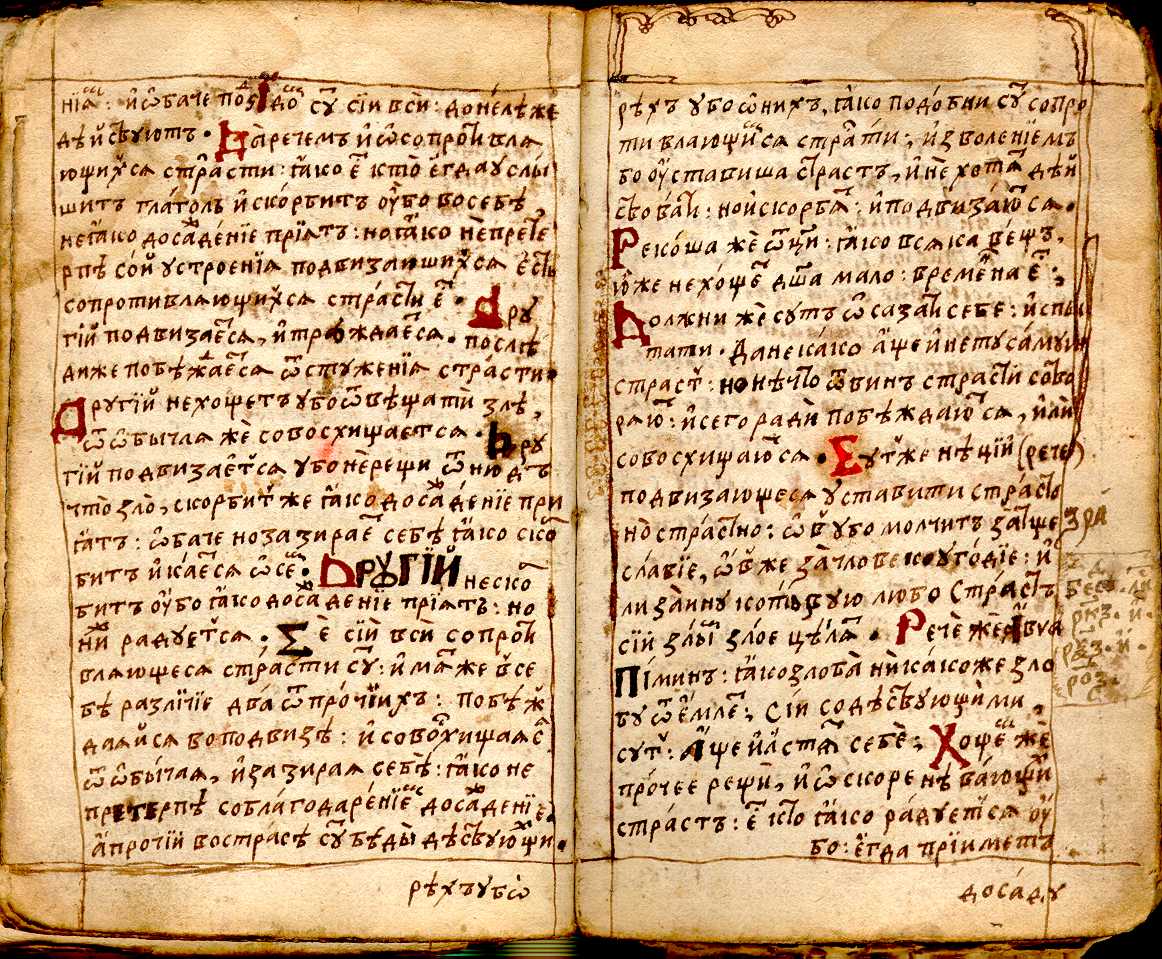 нїѧ: и҆ ѡ҆баче под̾ı до сꙋ сїи всѝ: донелѣже
дѣйсвꙋютъ. Да речемъ и҆ ѡ҆ сопроти влѧ
ющихсѧ страсти: ꙗ҆ко є҆ кто̀ є҆гда ᲂу҆слы
шитъ глаголъ и҆ скорбитъ ᲂу҆бо во себѣ
не ꙗ҆ко досажденїе прїѧтъ: но ꙗ҆ко не прете
рпѣ сᲂй ᲂустроенїѧ подвизаишихсѧ є҆сть
сопротивлѧющихсѧ страсти є҆. Дрꙋ
гїй подвизаетсѧ, и҆ трᲂждаетсѧ. послѣ
диже побѣждаетсѧ ѿ стꙋженїѧ страсти.
Дрꙋгїй не хощетъ ᲂубо ѿвѣщати злѣ,
ѿ ѡ҆бычаѧ же совосхищаетсѧ. Дрꙋ
гїй подвизаетсѧ ᲂубо не рещи ѿнюдъ
что̀ зло̀, скорбит же ꙗ҆ко досажденїе при
ꙗ҆тъ: ѡ҆баче но зазирае себѣ ꙗ҆ко ско
битъ и҆ каетсѧ ѡ҆ се. Дрꙋгїй не ско
битъ ᲂу҆бо ꙗ҆ко досажденїе прїѧтъ: но
ни радꙋетсѧ. Се сїй всѝ сопроти
влѧющесѧ страсти сꙋ: и҆маже все
бѣ разлїчїе два ѿ прочїихъ: побѣж
даѧйсѧ во подвизѣ: и҆ совосхищаѧс
ѿ ѡ҆бычаѧ, и҆ зазираѧ себѣ: ꙗ҆ко не
претерпѣ со благодаренїе досажденїе.
а҆ прочїи во страсѣ сꙋ бѣды дѣсвꙋющи.
рѣхъ ᲂубѡ
рѣхъ ᲂубо ѡ҆ нихъ, ꙗ҆ко подобни сꙋ сопро
ти влающисѧ страсти; и҆зволенїемъ
бо ᲂу҆ставиша страстъ, и҆ не хотѧ дѣй
свовати: но и҆ скорбѧ: и҆ подвизаютсѧ.
Рекоша же ѿци: ꙗ҆ко всѧка вещъ,
ю҆же не хоще дша мало: времена є҆;
Должни же сꙋтъ ѡ҆сазати себе: и҆спы
тати. Да не како а҆ще и҆ не тꙋ самꙋ
страст: но нѣчто ѿ винъ страстїй сотво
рѧю: и҆ сего ради побѣждаютсѧ, и҆ли
совосхищаютсѧ. Сꙋт же нѣцїи (рече)
подвизающесѧ ᲂуставити страсть
но страстно: ѡ҆в ᲂубо молчитъ за тще
славїе, ѡ҆в же за человекоꙋгодїе: и҆
ли за инꙋ котѡрꙋю любо страсть
сїй злы злое цѣлѧ. Рече же авва
Пїминъ: ꙗ҆ко злоба никакоже зло
бꙋ ѿемле; Сїи содѣсвꙋющими,
сꙋт: а҆ще и҆ лстѧ себѐ; Хоще же
прочее рещи, и҆ ѡ҆ искоренѣвающи
страстъ: є҆ кто ꙗ҆ко радꙋетсѧ ᲂу҆
бо: є҆гда прїиметъ
досадꙋ
зра